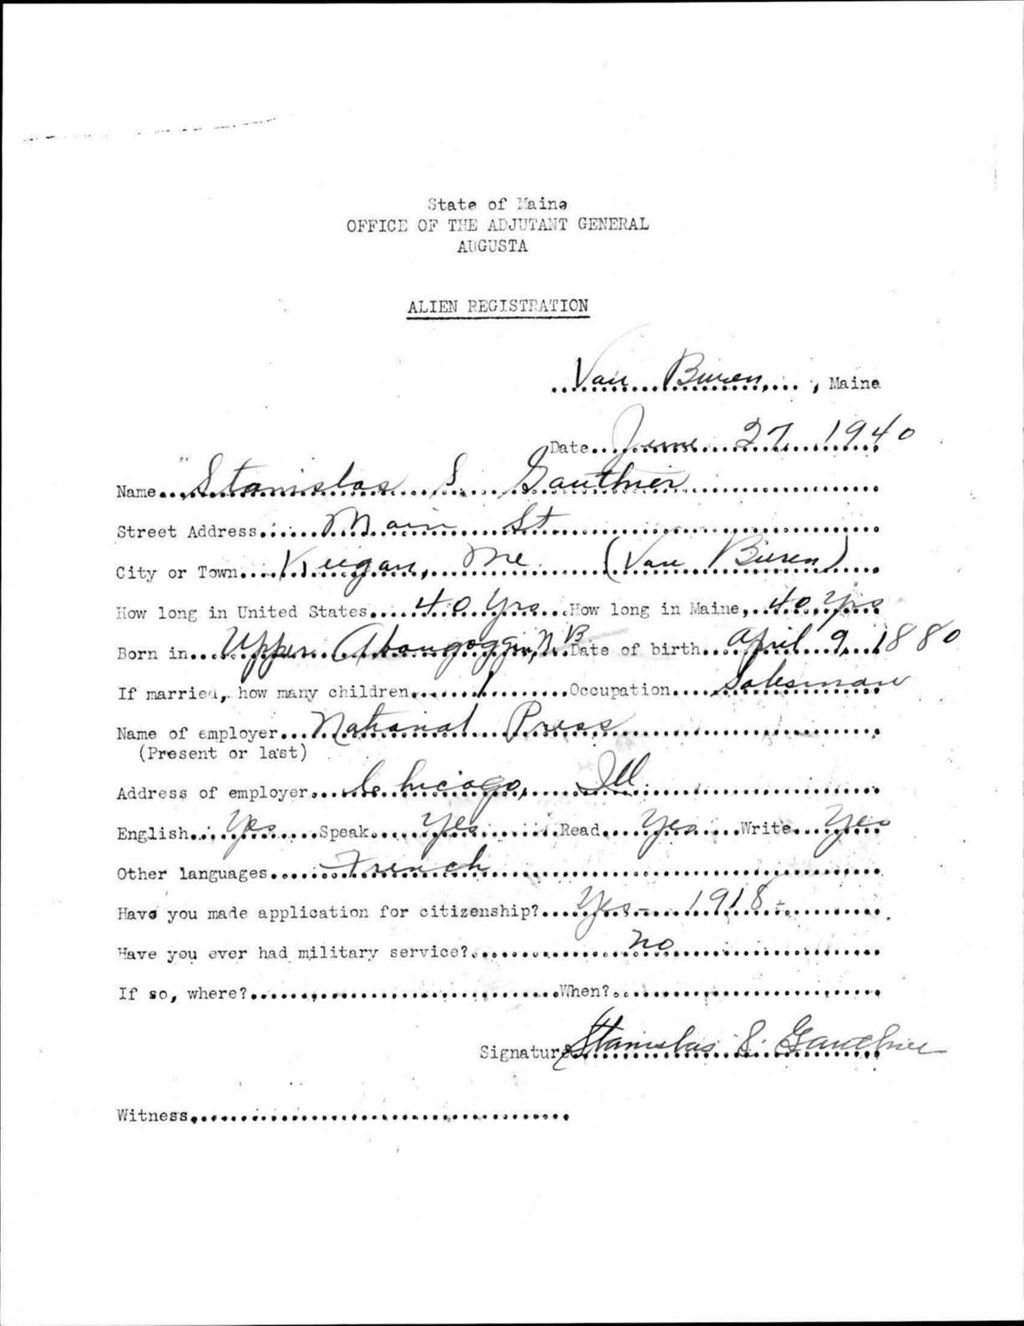 State of Maine
OFFICE OF THE ADJUTANT GENERAL
AUGUSTA
ALIEN REGISTRATION
Van Buren, Maine
Date June 27 1940
Name Stanislas S. Gauthier
Street Address Main St
City or Town Keegan, Me (Van Buren)
How long in United States 40 Yrs How long in Maine, 40 Yrs
Born in Upper N.B. Date of birth April 9, 1880
If married, how many children 1 Occupation Salesman
Name of employer National Press
(Present or last)
Address of employer Chicago, Ill.
English Yes Speak Yes Read Yes Write Yes
Other languages French
Have you made application for citizenship? Yes - 1918 -
Have you ever had military service? no
If so, where? When?
Signature Stanislas S. Gauthier
Witness